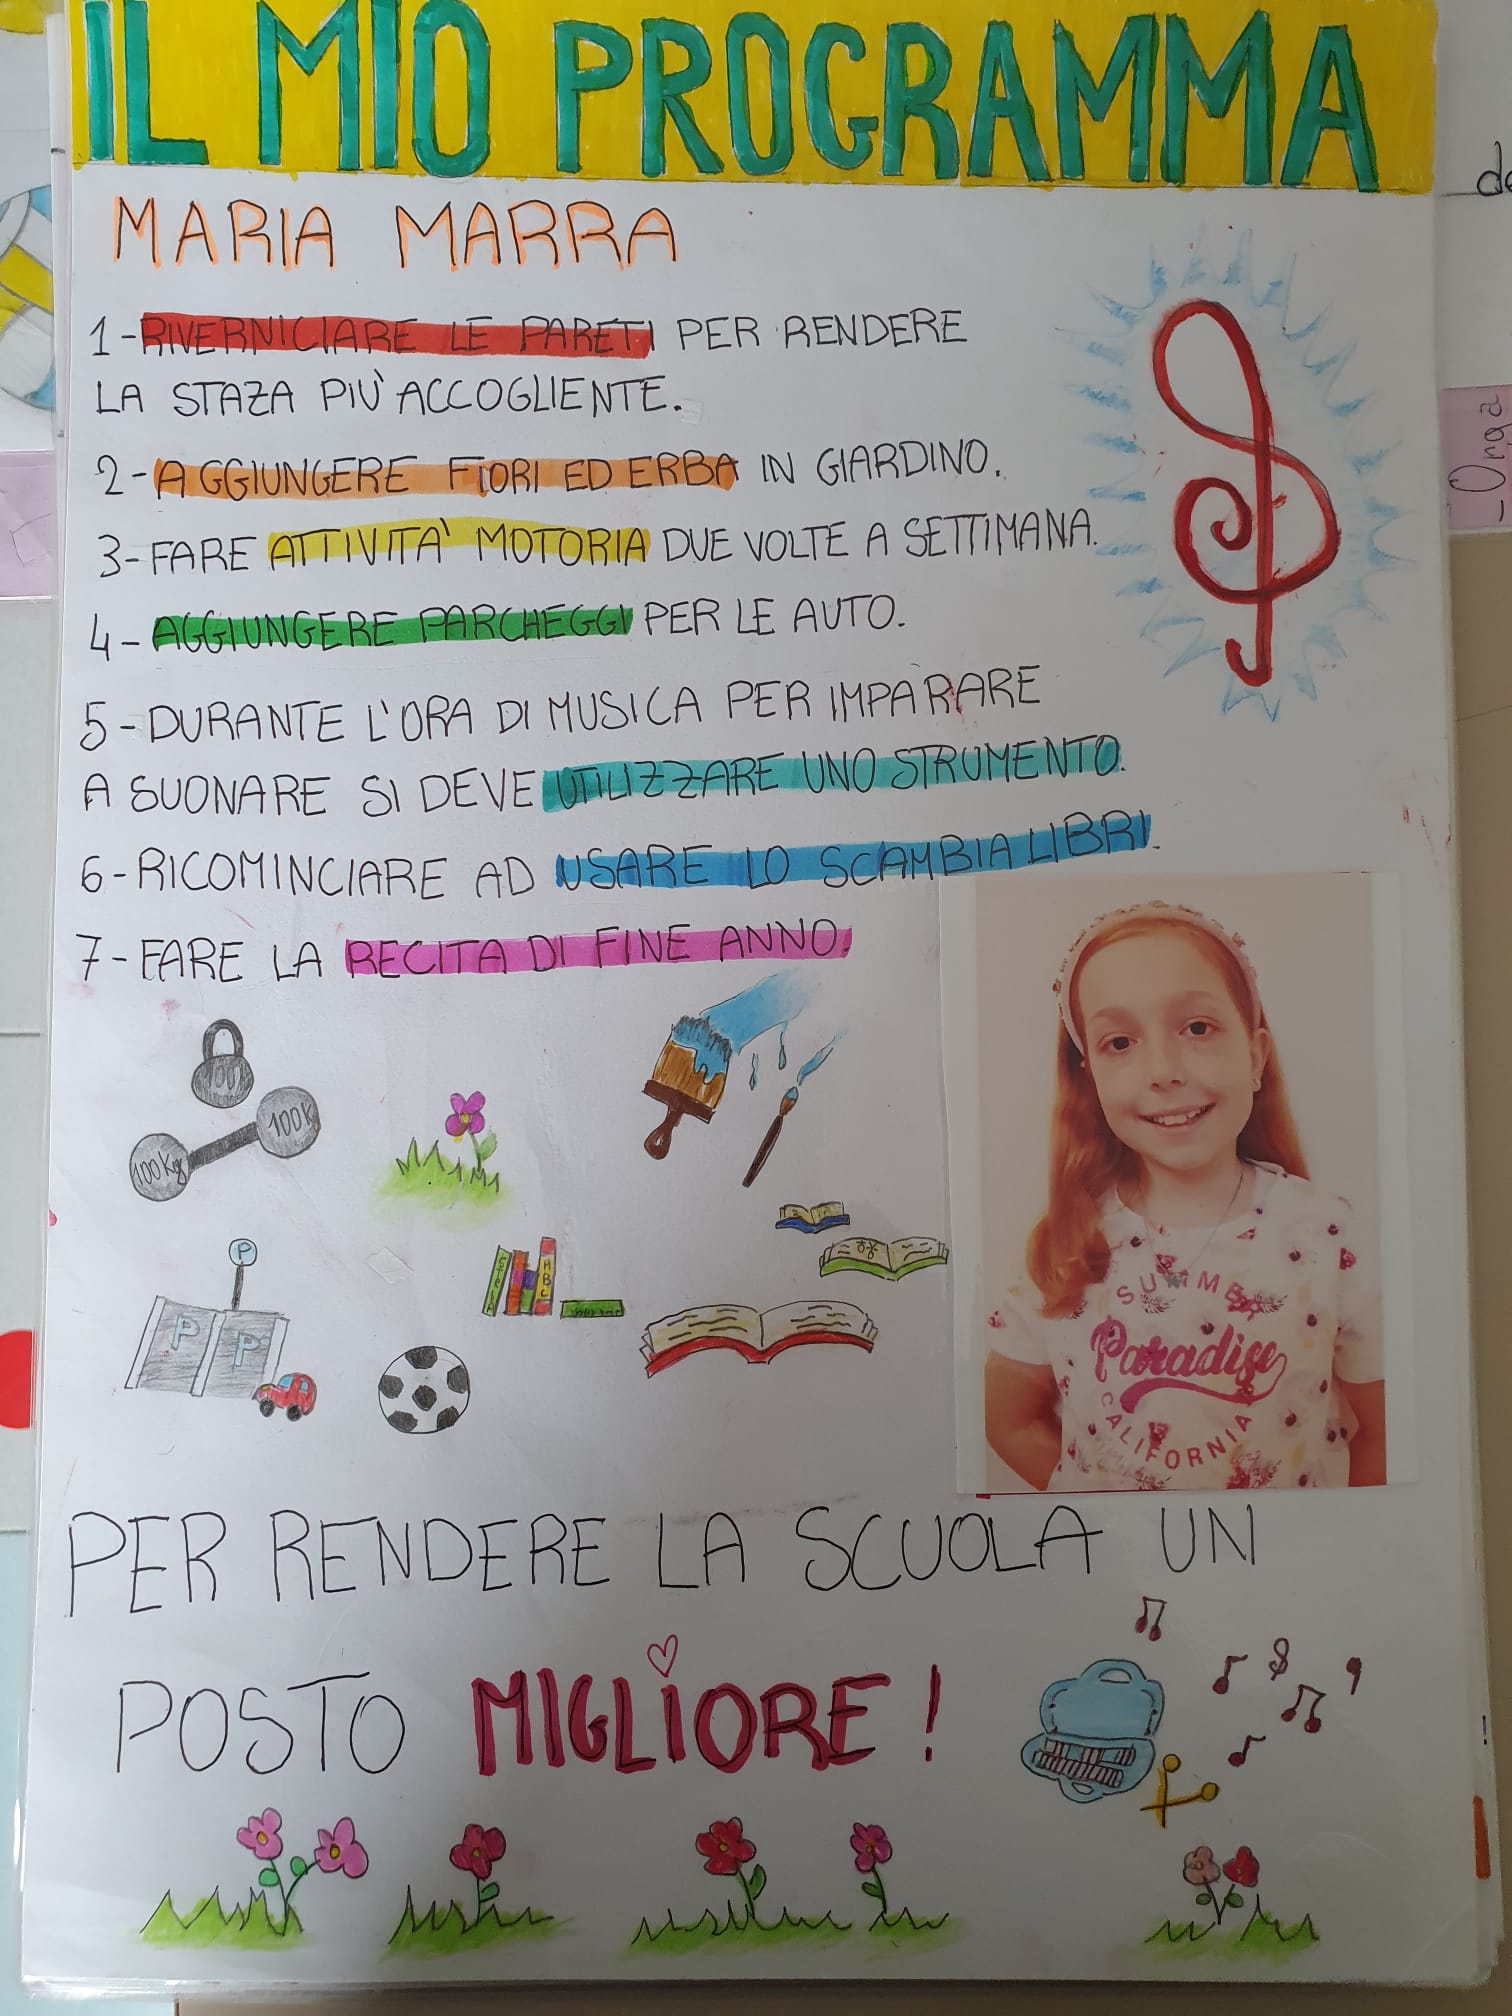 IL MIO PROGRAMMA
MARIA MARRA
1-RIVERNICIARE LE PARETI PER RENDERE
LA STAZA PIÙ ACCOGLIENTE.
2-AGGIUNGERE FIORI ED ERBA IN GIARDINO.
3-FARE ATTIVITA' MOTORIA DUE VOLTE A SETTIMANA.
4-AGGIUNGERE PARCHEGGI PER LE AUTO.
5-DURANTE L'ORA DI MUSICA PER IMPARARE
A SUONARE SI DEVE UTILIZZARE UNO STRUMENTO.
6-RICOMINCIARE AD USARE LO SCAMBIA LIBRI.
7-FARE LA RECITA DI FINE ANNO.
100K
100Kg
P
P P
ABC
SUMMER
Paradise
CALIFORNIA
PER RENDERE LA SCUOLA UN
POSTO MIGLIORE!
Orga